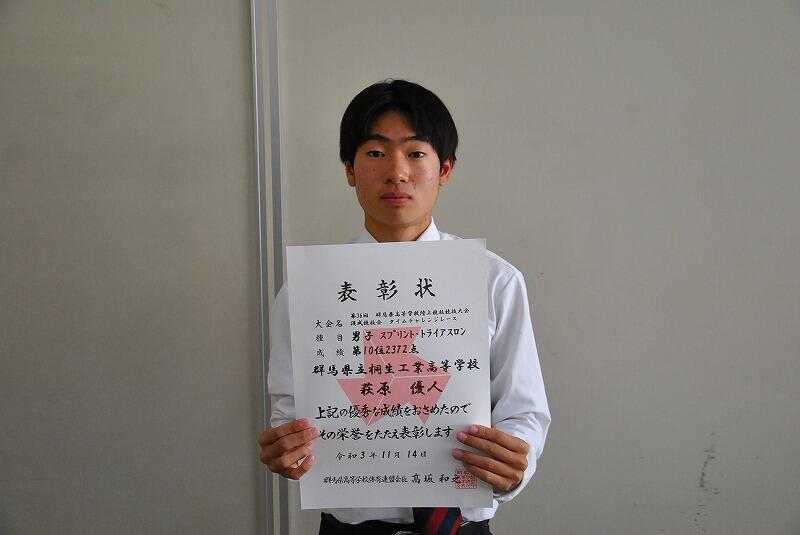 表彰状
第36回 群馬県高等学校陸上競技競技大会
大会名 混成競技会 タイムチャレンジレース
種目 男子 スプリント・トライアスロン
成績 第10位2372点
群馬県立桐生工業高等学校
萩原 優人
上記の優秀な成績をおさめたので
その栄誉をたたえ表彰します
令和3年11月14日
群馬県高等学校体育連盟会長 高坂 和之